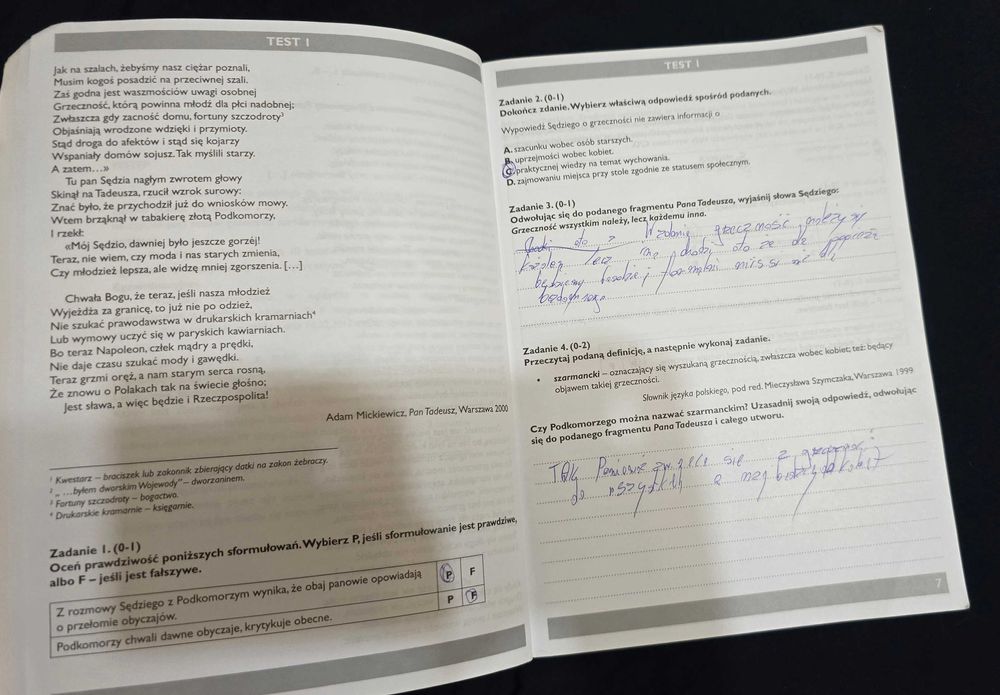 TEST I
Jak na szalach, żebyśmy nasz ciężar poznali,
Musim kogoś posadzić na przeciwnej szali.
Zaś godna jest waszmościów uwagi osobnej
Grzeczność, którą powinna młodź dla płci nadobnej;
Zwłaszcza gdy zacność domu, fortuny szczodroty³
Objaśniają wrodzone wdzięki i przymioty.
Stąd droga do afektów i stąd się kojarzy
Wspaniały domów sojusz. Tak myślili starzy.
A zatem...»
Tu pan Sędzia nagłym zwrotem głowy
Skinął na Tadeusza, rzucił wzrok surowy:
Znać było, że przychodził już do wniosków mowy.
Wtem brząknął w tabakierę złotą Podkomorzy,
I rzekł:
«Mój Sędzio, dawniej było jeszcze gorzej!
Teraz, nie wiem, czy moda i nas starych zmienia,
Czy młodzież lepsza, ale widzę mniej zgorszenia. [...]
Chwała Bogu, że teraz, jeśli nasza młodzież
Wyjeżdża za granicę, to już nie po odzież,
Nie szukać prawodawstwa w drukarskich kramarniach⁴
Lub wymowy uczyć się w paryskich kawiarniach.
Bo teraz Napoleon, człek mądry a prędki,
Nie daje czasu szukać mody i gawędki.
Teraz grzmi oręż, a nam starym serca rosną,
Że znowu o Polakach tak na świecie głośno;
Jest sława, a więc będzie i Rzeczpospolita!
Adam Mickiewicz, Pan Tadeusz, Warszawa 2000
¹ Kwestarz – braciszek lub zakonnik zbierający datki na zakon żebraczy.
² „ ...byłem dworskim Wojewody” – dworzaninem.
³ Fortuny szczodroty – bogactwo.
⁴ Drukarskie kramarnie – księgarnie.
Zadanie 1. (0-1)
Oceń prawdziwość poniższych sformułowań. Wybierz P, jeśli sformułowanie jest prawdziwe,
albo F – jeśli jest fałszywe.
Z rozmowy Sędziego z Podkomorzym wynika, że obaj panowie opowiadają
o przełomie obyczajów.
P F
Podkomorzy chwali dawne obyczaje, krytykuje obecne.
P F
TEST I
Zadanie 2. (0-1)
Dokończ zdanie. Wybierz właściwą odpowiedź spośród podanych.
Wypowiedź Sędziego o grzeczności nie zawiera informacji o
A. szacunku wobec osób starszych.
B. uprzejmości wobec kobiet.
C. praktycznej wiedzy na temat wychowania.
D. zajmowaniu miejsca przy stole zgodnie ze statusem społecznym.
Zadanie 3. (0-1)
Odwołując się do podanego fragmentu Pana Tadeusza, wyjaśnij słowa Sędziego:
Grzeczność wszystkim należy, lecz każdemu inna.
grzeczność należy się
lecz nie chodzi oto ze
będziemy bardziej
Zadanie 4. (0-2)
Przeczytaj podaną definicję, a następnie wykonaj zadanie.
• szarmancki – oznaczający się wyszukaną grzecznością, zwłaszcza wobec kobiet; też: będący
objawem takiej grzeczności.
Słownik języka polskiego, pod red. Mieczysława Szymczaka, Warszawa 1999
Czy Podkomorzego można nazwać szarmanckim? Uzasadnij swoją odpowiedź, odwołując
się do podanego fragmentu Pana Tadeusza i całego utworu.
TAK Ponieważ się z
do wszystkich a
7